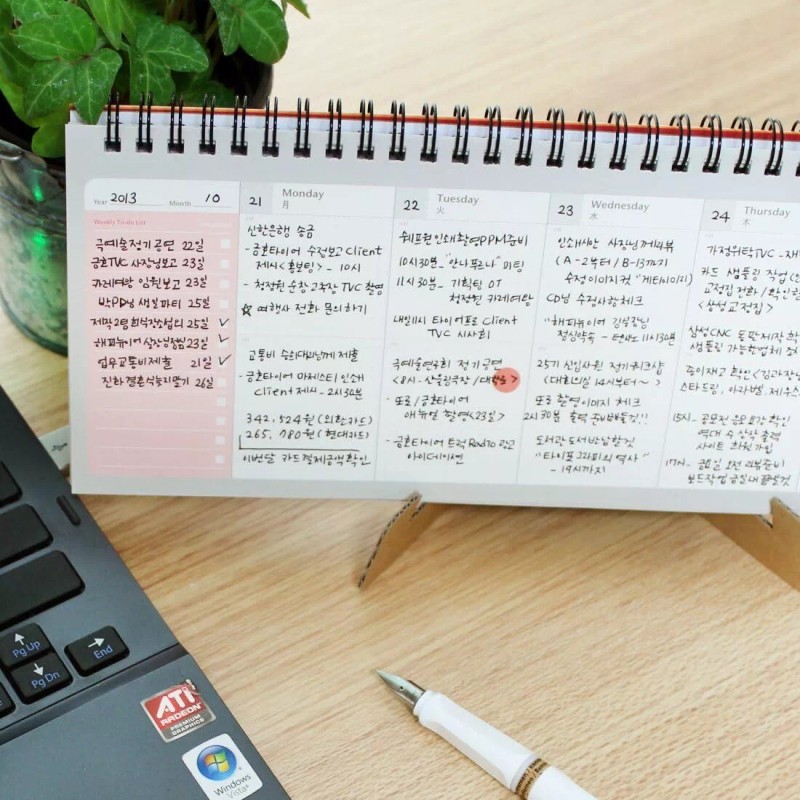 Year 2013 Month 10
Weekly To-do List
극예술정기공연 22일
금호TVC 사장님보고 23일
카레여왕 임원보고 23일
박PD님 생일파티 25일
23일
업무교통비제출 21일
26일
21 Monday
月
신한은행 송금
- 금호타이어 수정보고 Client
제시<홍보팀> - 10시
- 청정원 순창고추장 TVC 촬영
☆ 여행사 전화 문의하기
교통비 승희대리님께 제출
- 금호타이어 마제스티 인쇄
Client 제시 - 2시30분
342,524원 (외환카드)
265,780원 (현대카드)
이번달 카드결제금액확인
22 Tuesday
火
쉐프원 인쇄촬영PPM준비
10시30분 - "안나푸르나" 미팅
11시30분 - 기획팀 OT
청정원 카레여왕
내일11시 타이어프로 Client
TVC 시사회
극예술연구회 정기공연
<8시 - 산울림극장 /
- 또로 / 금호타이어
애뉴얼 촬영<23일>
- 금호타이어 트럭 Radio 광고
아이데이션
23 Wednesday
水
인쇄시안 사장님께리뷰
(A-2부터 / B-13까지
수정이미지컷 "게티이미지)
CD님 수정사항체크
"해피뉴이어 김실장님
정심약속 - 11시30분
25기 신입사원 정기워크샵
(대회의실 14시부터~)
또로 촬영이미지 체크
2시30분 출력 준비해둘것!!
도서관 도서반납할것
"타이포그라피의 역사"
- 19시까지
24 Thursday
木
가정위탁TVC -
카드 샘플링 작업
교정집 전화 / 확인
<삼성교정집>
삼성CNC 동판제작
샘플링 가능한업체
종이재고 확인 <김과장님
스타드림, 아라벨,
15시 - 공모전 응모요강 확인
역대 수상작 출력
사이트 회원가입
17시 - 금요일 오전 리뷰준비
보드작업 금일내 끝낼것
Pg Up
Pg Dn
End
ATI
RADEON
PREMIUM
GRAPHICS
Windows
Vista